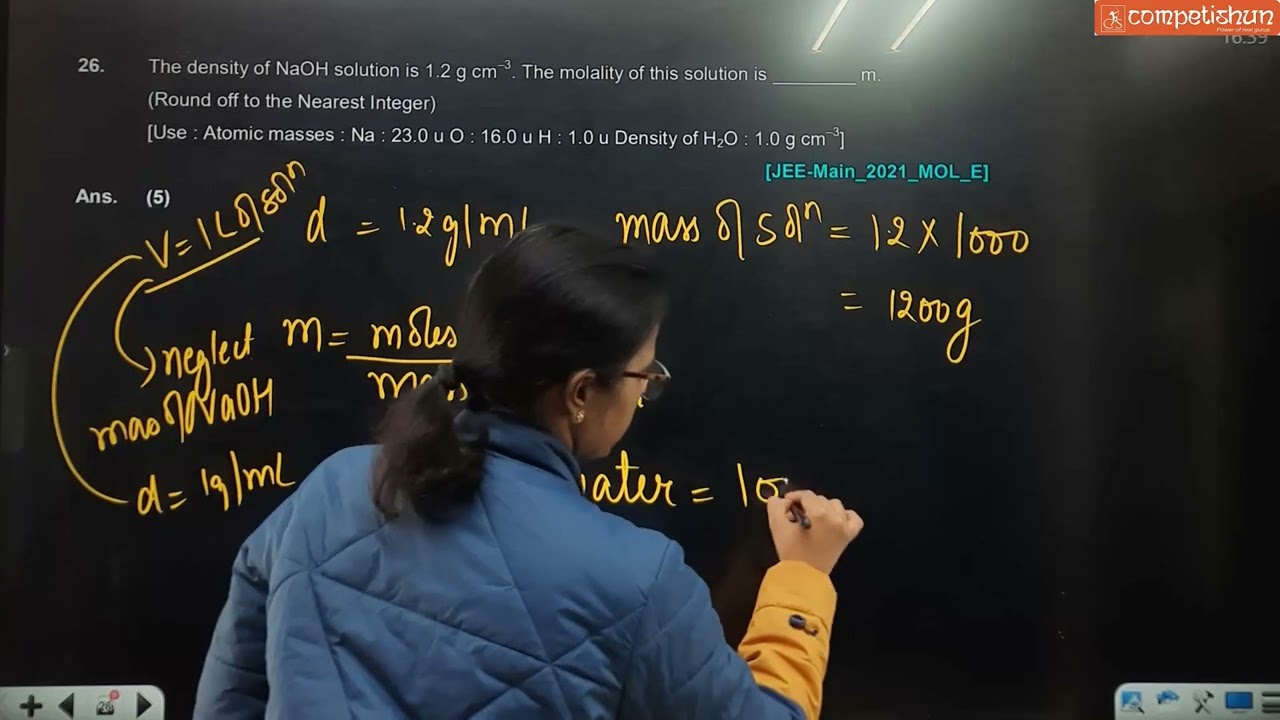 competishun
Power of real gurus
16:39
26. The density of NaOH solution is 1.2 g cm⁻³. The molality of this solution is ________ m.
(Round off to the Nearest Integer)
[Use : Atomic masses : Na : 23.0 u O : 16.0 u H : 1.0 u Density of H₂O : 1.0 g cm⁻³]
[JEE-Main_2021_MOL_E]
Ans. (5)
V = 1L of solⁿ d = 1.2 g/ml mass of solⁿ = 1.2 × 1000
= 1200g
neglect m = moles
mass of NaOH mass
d = 1g/mL water = 10